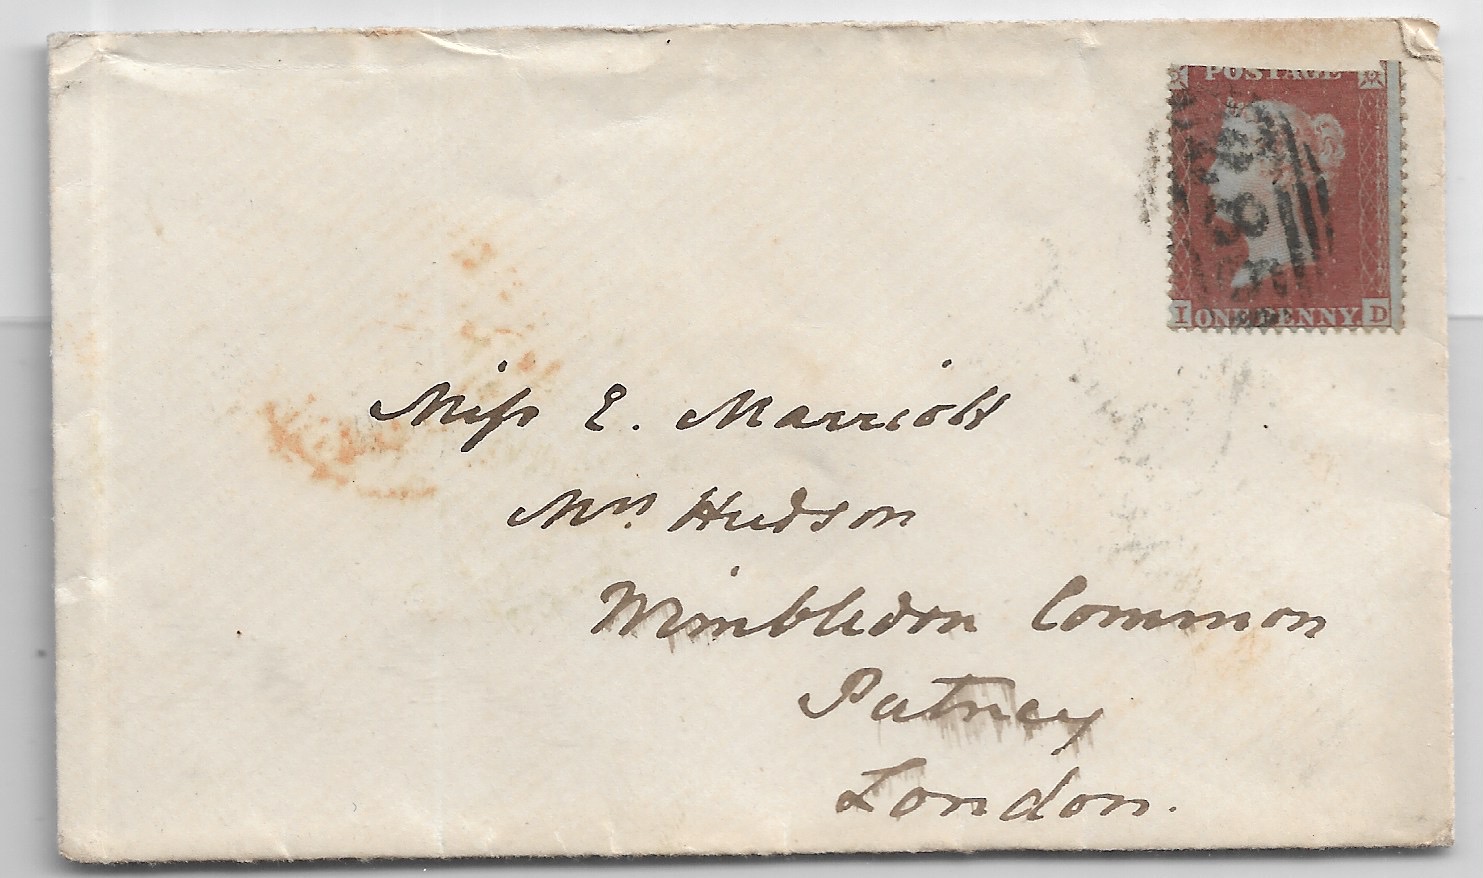 POSTAGE
I ONE PENNY D
Miss E. Marriott
Mrs Hudson
Wimbledon Common
Putney
London.